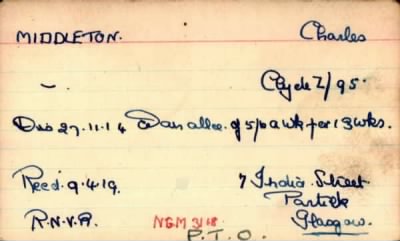 MIDDLETON. Charles
-. Clyde Z/95
Dis 27.11.14 Dan allce. of 5/- a wk for 13 wks.
Recd. 9.4.19. 7 India Street
Partick
R.N.V.R. NGM 3/68 Glasgow.
P.T.O.